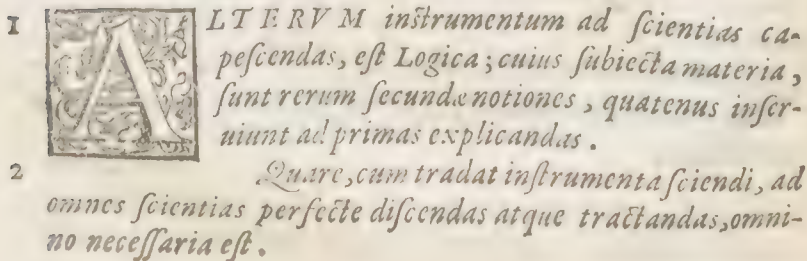 1 ALTERVM instrumentum ad ſcientias ca-
peſcendas, eſt Logica; cuius ſubiecta materia,
ſunt rerum ſecundæ notiones, quatenus inſer-
uiunt ad primas explicandas.
2 Quare, cum tradat inſtrumenta ſciendi, ad
omnes ſcientias perfecte diſcendas atque tractandas, omni-
no neceſſaria eſt.